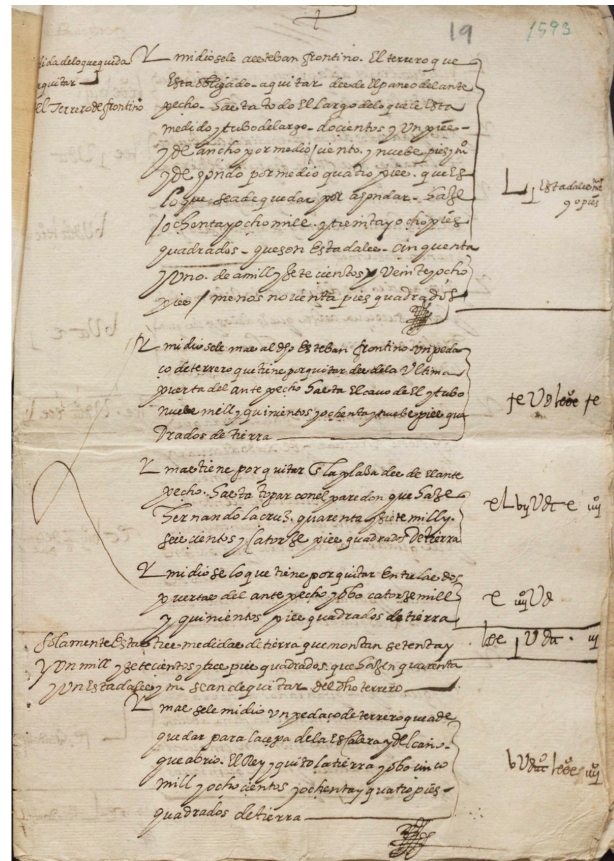 19 1593
dida de lo que queda
por quitar
el Terrero de frontino
Y midiosele a esteban frontino. El terrero que
esta obligado a quitar desde el paneo del ante
pecho. hasta todo el largo de lo qual esta
medido y tubo de largo. docientos y un pies
y de ancho por medio ciento. y nuebe pies y mº
y de hondo por medio quatro pies. que es
lo que se a de quedar por ahondar. haze
ochenta y ocho mill. y treinta y ocho pies
quadrados. que son estadales. cinquenta
y uno. de a mill y sete cientos y veinte y ocho
pies / menos noventa pies quadrados
L j estadales mºˢ
90 pies
Y midiosele mas al dho esteban frontino. un peda
ço de terrero que tiene por quitar desde la ultima
puerta del ante pecho hasta el cavo de el y tubo
nuebe mill y quinientos y ochenta y nuebe pies qua
drados de tierra
Y mas tiene por quitar en la plaça desde el ante
pecho. hasta topar con el paredon que haze
hernando la cruz. quarenta y siete mill y.
seiscientos y catorze pies quadrados de tierra
Y midiose lo que tiene por quitar entre las dos
puertas del ante pecho y obo catorze mill
y quinientos pies quadrados de tierra
Solamente estas tres medidas de tierra que montan setenta y
y un mill y setecientos y tres pies quadrados. que hazen quarenta
y un estadales y mº se an de quitar del dho terrero
Y mas se le midio un pedaço de terrero que a de
quedar para la cepa de la escalera y del cami
que abrio. El Rey y quito la tierra y obo cinco
mill y ochocientos y ochenta y quatro pies
quadrados de tierra